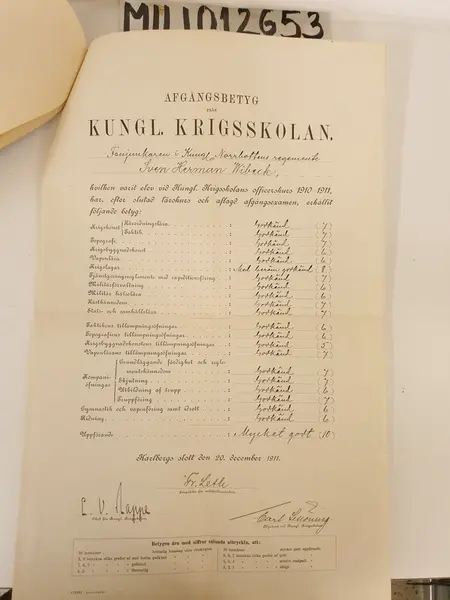 MIL1012653
AFGÅNGSBETYG
FRÅN
KUNGL. KRIGSSKOLAN.
Fanjunkaren i Kungl. Norrbottens regemente
Sven Herman Wibeck,
hvilken varit elev vid Kungl. Krigsskolans officerskurs 1910-1911,
har, efter slutad lärokurs och aflagd afgångsexamen, erhållit
följande betyg:
Krigskonst Härordningslära : Godkänd (7)
Taktik : Godkänd (7)
Topografi : Godkänd (7)
Krigsbyggnadskonst : Godkänd (6)
Vapenlära : Godkänd (6)
Krigslagar : Med beröm godkänd (8)
Tjänstgöringsreglemente med expeditionsföring : Godkänd (7)
Militärförvaltning : Godkänd (6)
Militär hälsolära : Godkänd (6)
Hästkännedom : Godkänd (7)
Stats- och samhällslära : Godkänd (7)
Taktikens tillämpningsöfningar : Godkänd (6)
Topografiens tillämpningsöfningar : Godkänd (6)
Krigsbyggnadskonstens tillämpningsöfningar : Godkänd (5)
Vapenlärans tillämpningsöfningar : Godkänd (7)
Kompani-öfningar Grundläggande färdighet och regle-
mentskännedom : Godkänd (7)
Skjutning : Godkänd (7)
Utbildning af trupp : Godkänd (6)
Truppföring : Godkänd (7)
Gymnastik och vapenföring samt idrott : Godkänd (6)
Ridning : Godkänd (6)
Uppförande : Mycket godt (10)
Karlbergs slott den 20. december 1911.
Betygen äro med siffror sålunda uttryckta, att: